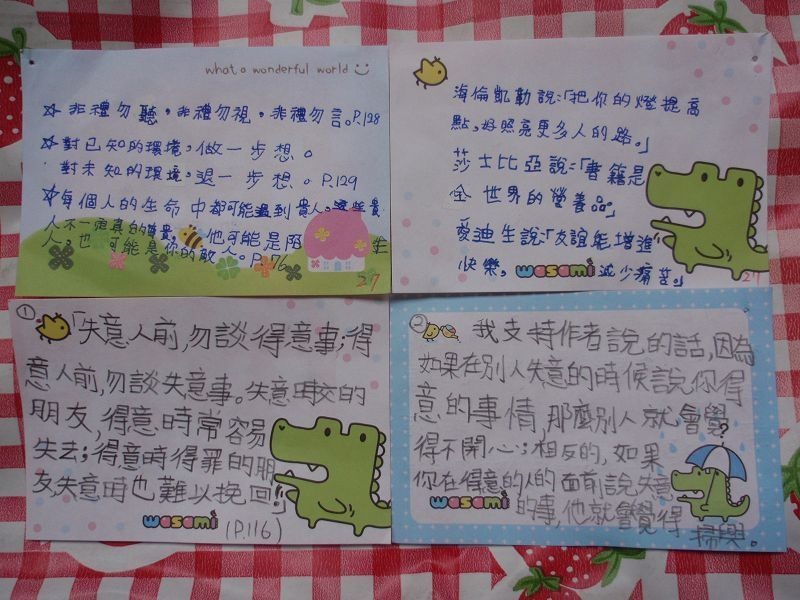 what a wonderful world
☆ 非禮勿聽。非禮勿視。非禮勿言。P.128
☆ 對已知的環境,做一步想。
對未知的環境,退一步想。P.129
☆ 每個人的生命中都可能遇到貴人。這些貴
人不一定真的尊貴。他可能是陌 生
人。也可能是你的敵人。P.76
27
海倫凱勒說:「把你的燈提高
點,好照亮更多人的路。」
莎士比亞說:「書籍是
全世界的營養品」
愛迪生說:「友誼能增進
快樂。減少痛苦。」
wasami
27
①
「失意人前,勿談得意事;得
意人前,勿談失意事。失意時交的
朋友,得意時常容易
失去;得意時得罪的朋
友,失意時也難以挽回。」
wasami
(P.116)
②
我支持作者說的話,因為
如果在別人失意的時候說你得
意的事情,那麼別人就會覺
得不開心;相反的,如果
你在得意的人的面前說失意
wasami
的事,他就會覺得
掃興。